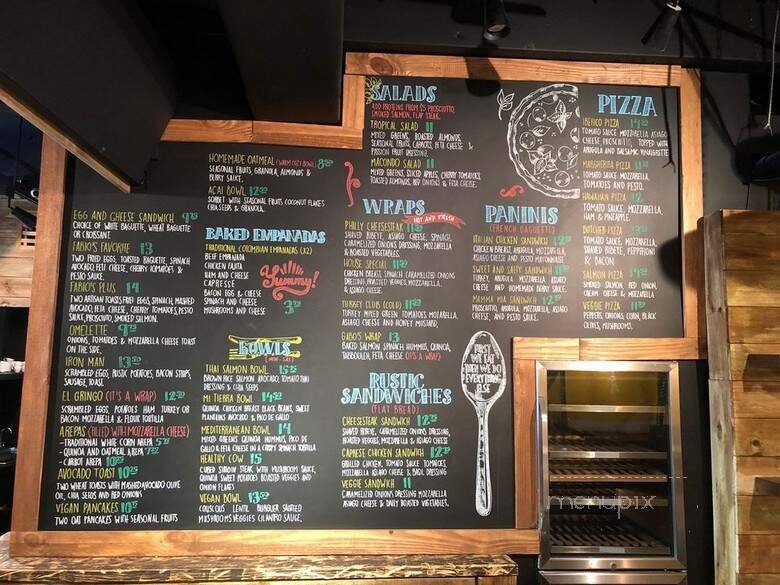 EGG AND CHEESE SANDWICH 9
CHOICE OF WHITE BAGUETTE, WHEAT BAGUETTE
OR CROISSANT
FABIO'S FAVORITE 13
TWO FRIED EGGS, TOASTED BAGUETTE, SPINACH
AVOCADO, FETA CHEESE, CHERRY TOMATOES &
PESTO SAUCE
FABIO'S PLUS 14
TWO ARTISAN TOASTS, FRIED EGGS, SPINACH, MASHED
AVOCADO, FETA CHEESE, CHERRY TOMATOES, PESTO
SAUCE, PROSCIUTTO, SMOKED SALMON.
OMELETTE 9
ONIONS, TOMATOES & MOZZARELLA CHEESE TOAST
ON THE SIDE.
IRON MAN 13
SCRAMBLED EGGS, RUSTIC POTATOES, BACON STRIPS,
SAUSAGE, TOAST.
EL GRINGO (IT'S A WRAP) 12
SCRAMBLED EGGS, POTATOES HAM TURKEY OR
BACON MOZZARELLA & FLOUR TORTILLA
AREPAS (FILLED WITH MOZZARELLA CHEESE)
- TRADITIONAL WHITE CORN AREPA
- QUINOA AND OATMEAL AREPA
- CARROT AREPA 10
AVOCADO TOAST 10
TWO WHEAT TOASTS WITH MASHED AVOCADO OLIVE
OIL, CHIA SEEDS AND RED ONIONS
VEGAN PANCAKES 10
TWO OAT PANCAKES WITH SEASONAL FRUITS
HOMEMADE OATMEAL (WARM COZY BOWL) 8
SEASONAL FRUITS, GRANOLA, ALMONDS &
BERRY SAUCE.
ACAI BOWL 12
SORBET WITH SEASONAL FRUITS COCONUT FLAKES
CHIA SEEDS & GRANOLA.
BAKED EMPANADAS
TRADITIONAL COLOMBIAN EMPANADAS (X2)
BEEF EMPANADA
CHICKEN FAJITA
HAM AND CHEESE
CAPRESSE
BACON EGG & CHEESE
SPINACH AND CHEESE
MUSHROOMS AND CHEESE 3
Yummy!
BOWLS
THAI SALMON BOWL 15
BROWN RICE SALMON AVOCADO, TOMATO THAI
DRESSING & CHIA SEEDS
MI TIERRA BOWL 14
QUINOA CHICKEN BREAST BLACK BEANS, SWEET
PLANTAINS AVOCADO & PICO DE GALLO
MEDITERRANEAN BOWL 14
MIXED GREENS QUINOA HUMMUS, PICO DE
GALLO & FETA CHEESE IN A CRISPY SPINACH TORTILLA
HEALTHY COW 15
CUBED SIRLOIN STEAK WITH MUSHROOM SAUCE,
QUINOA SWEET POTATOES ROASTED VEGGIES AND
ONION FLAKES
VEGAN BOWL 13
COUSCOUS LENTIL BURGUER SAUTEED
MUSHROOMS VEGGIES CILANTRO SAUCE.
SALADS
ADD PROTEINS FROM $5 PROSCIUTTO,
SMOKED SALMON, FLAP STEAK.
TROPICAL SALAD 11
MIXED GREENS, ROASTED ALMONDS,
SEASONAL FRUITS, CARROTS, FETA CHEESE &
PASSION FRUIT DRESSING.
MACONDO SALAD 11
MIXED GREENS, SLICED APPLES, CHERRY TOMATOES
TOASTED ALMONDS, RED ONIONS & FETA CHEESE.
WRAPS
HOT AND FRESH
PHILLY CHEESESTEAK 11
SHAVED RIBEYE, ASIAGO CHEESE, SPINACH,
CARAMELIZED ONIONS, DRESSING, MOZZARELLA
& ROASTED VEGETABLES.
HOUSE SPECIAL 11
CHICKEN BREAST, SPINACH CARAMELIZED ONIONS
DRESSING, ROASTED VEGGIES, MOZZARELLA,
& ASIAGO CHEESE.
TURKEY CLUB (COLD) 11
TURKEY MIXED GREEN TOMATOES, MOZZARELLA,
ASIAGO CHEESE AND HONEY MUSTARD,
GABO'S WRAP 13
BAKED SALMON SPINACH HUMMUS, QUINOA,
TABBOULEH, FETA CHEESE (IT'S A WRAP)
RUSTIC
SANDWICHES
(FLAT BREAD)
CHEESESTEAK SANDWICH 12
SHAVED RIBEYE, CARAMELIZED ONIONS, DRESSING,
ROASTED VEGGIES, MOZZARELLA & ASIAGO CHEESE
CAPRESE CHICKEN SANDWICH 12
GRILLED CHICKEN, TOMATO SAUCE, TOMATOES,
MOZZARELLA ASIAGO CHEESE & BASIL DRESSING
VEGGIE SANDWICH 11
CARAMELIZED ONIONS DRESSING MOZZARELLA
ASIAGO CHEESE & DAILY ROASTED VEGETABLES.
PANINIS
(FRENCH BAGUETTE)
ITALIAN CHICKEN SANDWICH 12
CHICKEN BREAST, ARUGULA, MOZZARELLA,
ASIAGO CHEESE AND PESTO MAYONNAISE
SWEET AND SALTY SANDWICH 11
TURKEY, ARUGULA, TOMATOES, ASIAGO
CHEESE AND HOMEMADE SWEET SAUCE
MAMMA MIA SANDWICH 12
PROSCIUTTO, ARUGULA, MOZZARELLA, ASIAGO
CHEESE, AND PESTO SAUCE.
FIRST
WE EAT
THEN WE DO
EVERYTHING
ELSE
PIZZA
IBERICO PIZZA 14
TOMATO SAUCE, MOZZARELLA, ASIAGO
CHEESE, PROSCIUTTO, TOPPED WITH
ARUGULA AND BALSAMIC VINAIGRETTE
MARGHERITA PIZZA 11
TOMATO SAUCE, MOZZARELLA,
TOMATOES AND PESTO.
HAWAIIAN PIZZA 12
TOMATO SAUCE, MOZZARELLA,
HAM & PINEAPPLE.
BUTCHER PIZZA 13
TOMATO SAUCE, MOZZARELLA,
SHAVED RIBEYE, PEPPERONI
& BACON
SALMON PIZZA 14
SMOKED SALMON, RED ONION,
CREAM CHEESE & MOZZARELLA
VEGGIE PIZZA 11
PEPPERS, ONIONS, CORN, BLACK
OLIVES, MUSHROOMS.
menupix